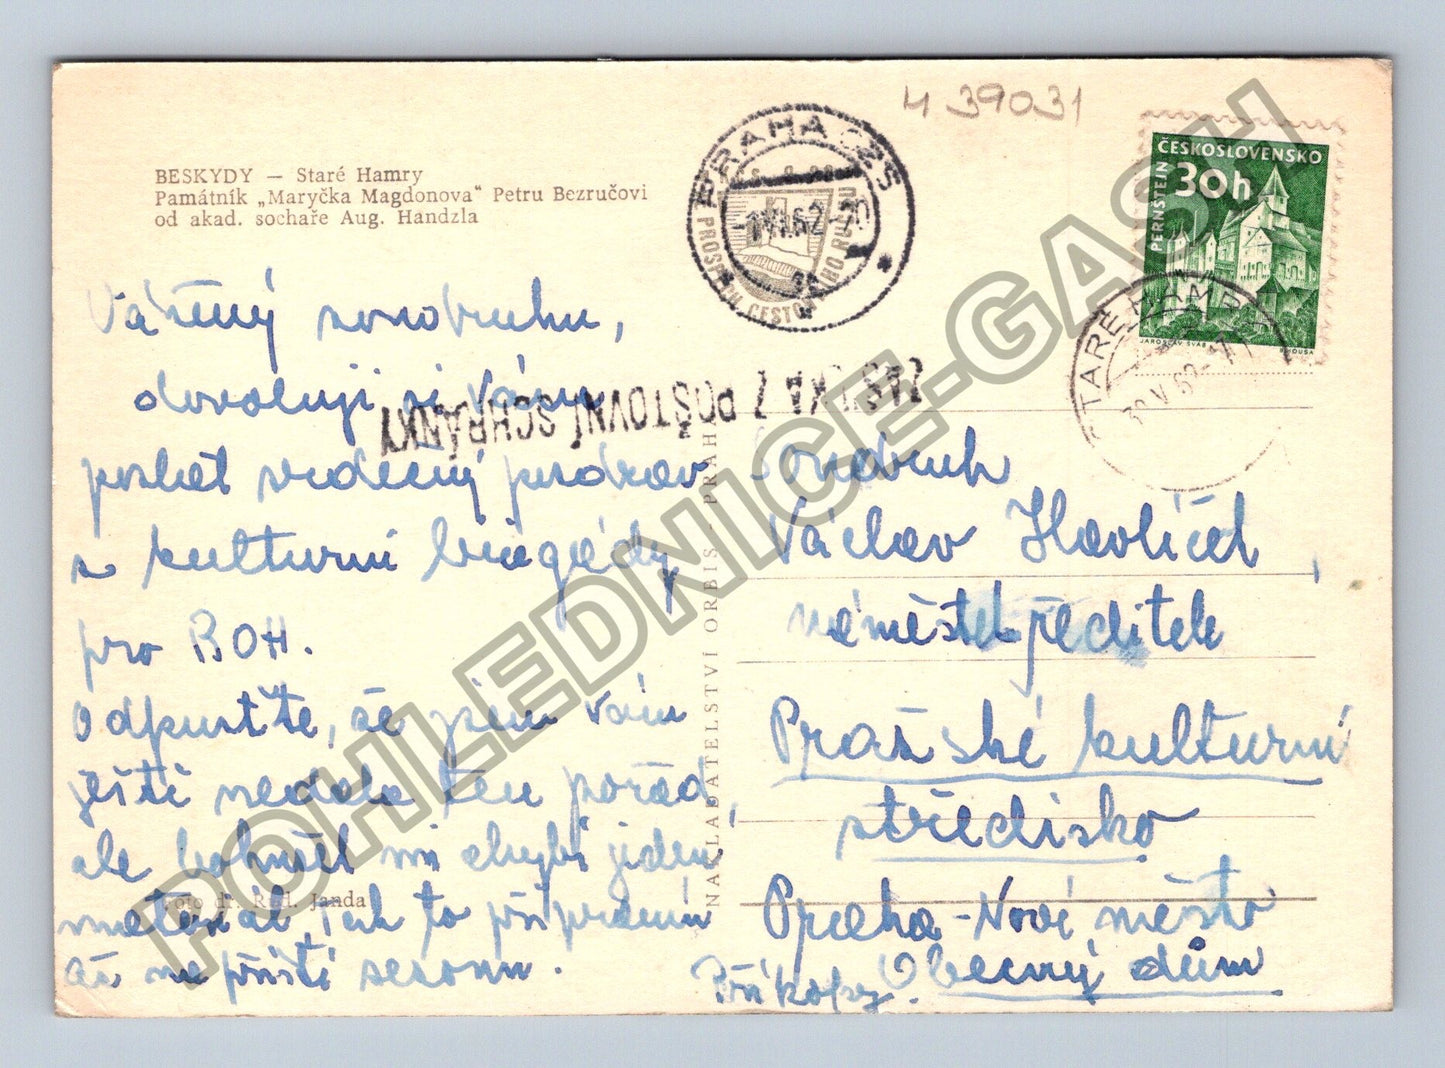 4 39031
BESKYDY — Staré Hamry
Památník „Maryčka Magdonova“ Petru Bezručovi
od akad. sochaře Aug. Handzla
PRAHA
62-20
ČESKOSLOVENSKO
30h
PERNŠTEJN
JAROSLAV ŠVÁB
STARÉ HAMRY
30.V.62
ZÁSILKA Z POŠTOVNÍ SCHRÁNKY
Vážený soudruhu,
dovoluji si Vám
poslat srdečný pozdrav
z kulturní brigády
pro ROH.
Odpusťte, že jsem Vám
ještě nedala ten pořad,
ale bohužel mi chybí jeden
materiál, tak to připravím
až na příští sezonu.
Foto dr. Rud. Janda
NAKLADATELSTVÍ ORBIS - PRAHA
Soudruh
Václav Havlíček,
náměstek ředitele
Pražské kulturní
středisko
Praha - Nové město
Příkopy. Obecný dům
POHLEDNICE-GASH